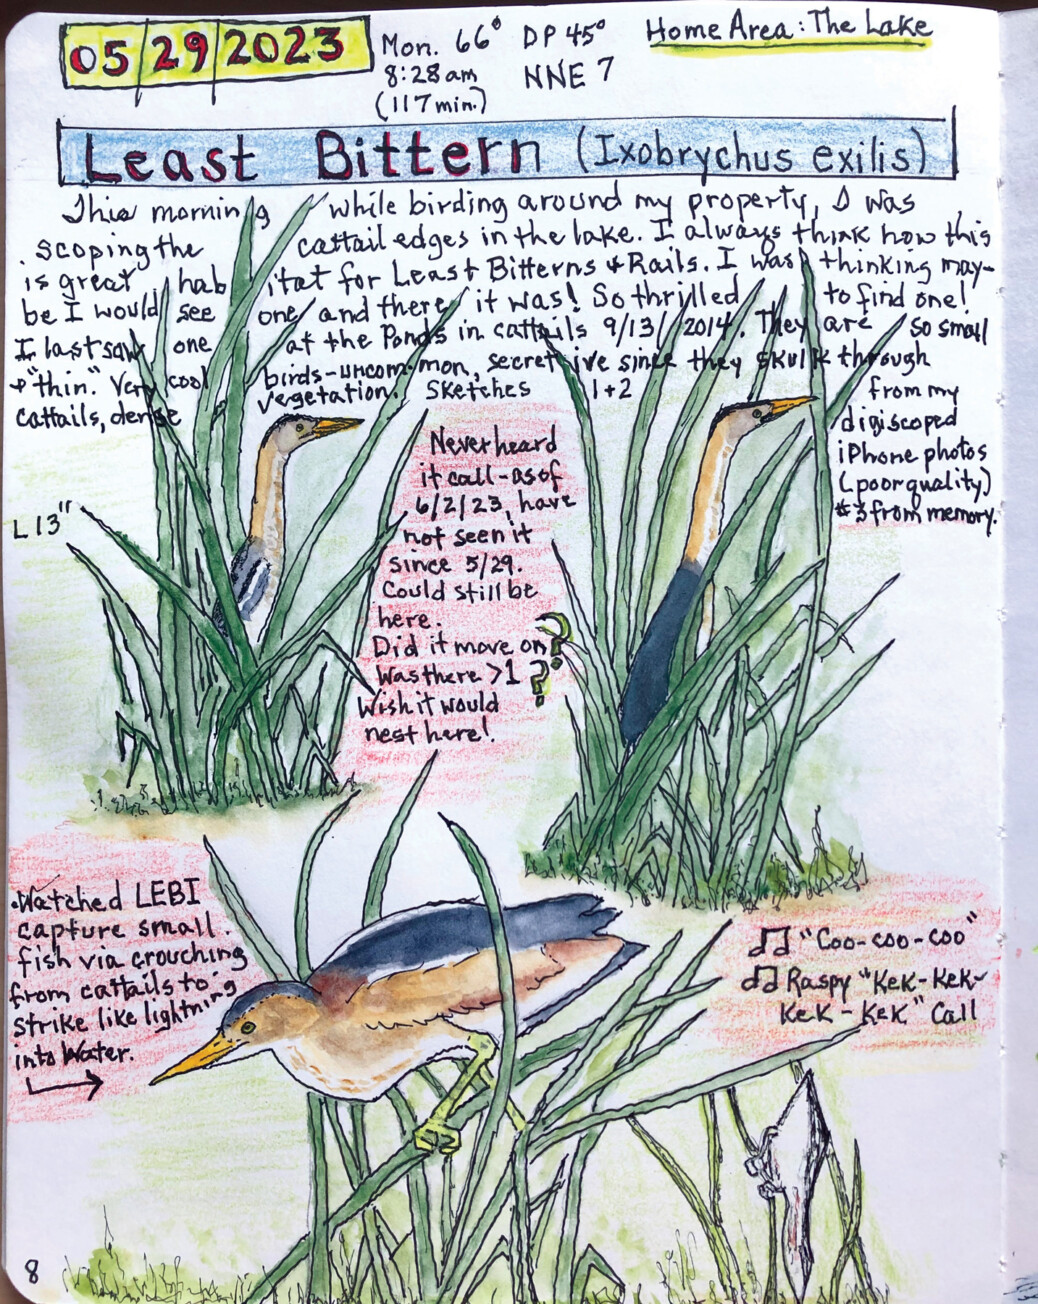 05/29/2023
Mon. 66° DP 45°
8:28am NNE 7
(117 min.)
Home Area: The Lake
Least Bittern (Ixobrychus exilis)
This morning while birding around my property, I was
scoping the cattail edges in the lake. I always think how this
is great habitat for Least Bitterns & Rails. I was thinking may-
be I would see one and there it was! So thrilled to find one!
I last saw one at the Ponds in cattails 9/13/2014. They are so small
& "thin." Very cool birds-uncommon, secretive since they skulk through
cattails, dense vegetation. Sketches 1+2
from my
digiscoped
iPhone photos
(poor quality)
#3 from memory.
L 13"
Never heard
it call-as of
6/2/23, have
not seen it
since 5/29.
Could still be
here.
Did it move on?
Was there >1?
Wish it would
nest here!
•Watched LEBI
capture small
fish via crouching
from cattails to
strike like lightning
into water.
"Coo-coo-coo"
Raspy "Kek-Kek-
Kek-Kek" Call
8